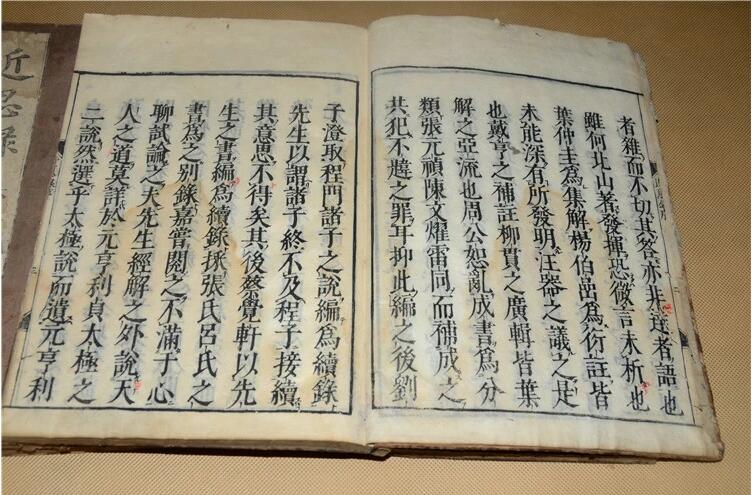 者雜而不切其答亦非達者語也
雖何北山著發揮恐微言未析也
葉仲圭為集解楊伯嵒為衍註皆
未能深有所發明汪器之議之是
也戴亨之補註柳貫之廣輯皆葉
解之亞流也周公恕亂成書為分
類張元禎陳文燿雷同而補成之
共犯不韙之罪耳抑此編之後劉
子澄取程門諸子之說編為續錄
先生以謂諸子終不及程子接續
其意思不得矣其後蔡覺軒以先
生之書編為續錄採張氏呂氏之
書為之別錄嘉嘗閱之不滿于心
聊試論之夫先生經解之外說天
人之道莫詳於元亨利貞太極之
二說然選乎太極說而遺元亨利
近思錄